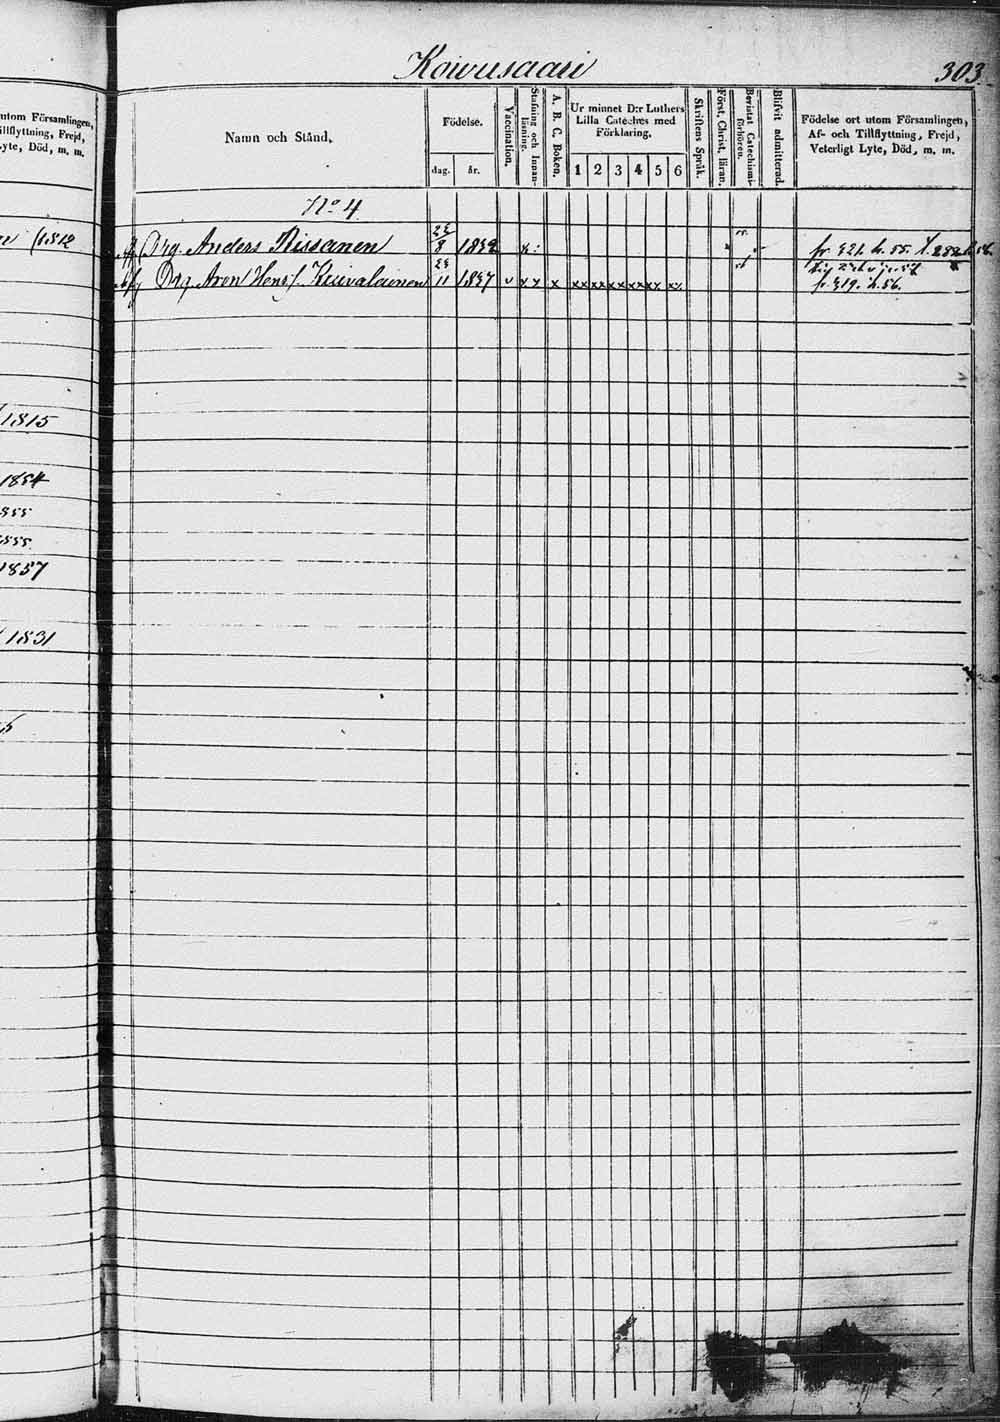 Koivusaari
303.
utom Församlingen,
illflyttning, Frejd,
yte, Död, m. m.
1812
1815
1854
855
1855
1857
1831
5
Namn och Stånd.
Födelse.
dag. år.
Vaccination.
Stafning och Innan-
läsning.
A. B. C. Boken.
Ur minnet D:r Luthers
Lilla Cateches med
Förklaring.
1 2 3 4 5 6
Skriftens Språk.
Först, Christ, läran.
Bevistat Catechismi-
förhören.
Blifvit admitterad.
Födelse ort utom Församlingen,
Af- och Tillflyttning, Frejd,
Veterligt Lyte, Död, m. m.
No 4
Drg. Anders Rissanen 22/8 1832 x: fr. 321. h. 55. t. 282 h. 56.
Drg Aron Hens f. Kuivalainen 23/11 1837 v x x x xx xx xx xx xx xx fr. 319. h. 56.